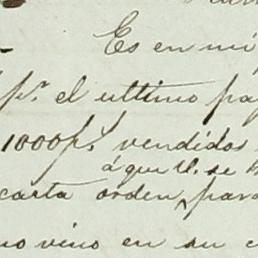 Es en mi
p.r el ultimo pa
1000p.s vendidos
á que U. se h
carta orden para
no vino en su c